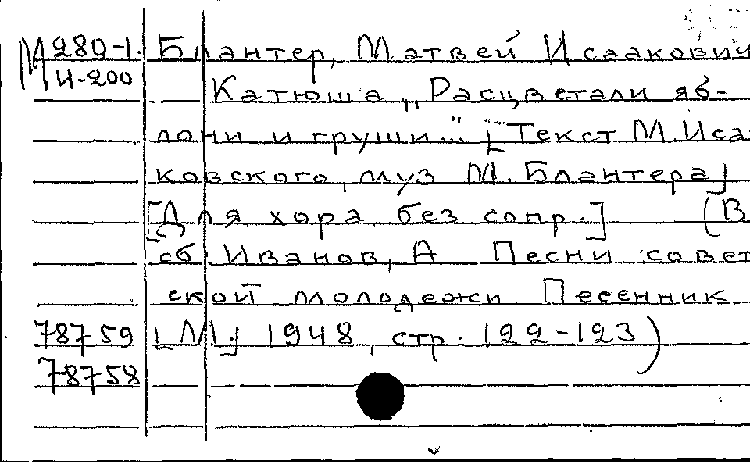 М 280-1. Блантер, Матвей Исаакович
И-200 Катюша „Расцветали яб-
лони и груши..." [Текст М. Иса-
ковского, муз М. Блантера]
[Для хора без сопр.] (В
сб: Иванов, А Песни совет
ской молодежи Песенник
78759 [М.] 1948, стр. 122-123)
78758